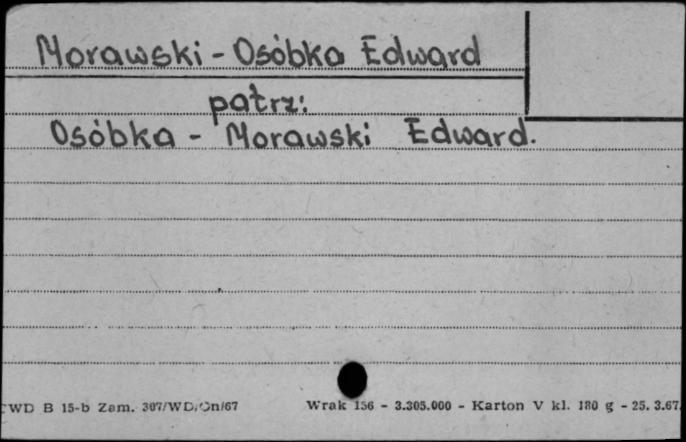 Morawski - Osóbka Edward
patrz:
Osóbka - Morawski Edward.
WD B 15-b Zam. 307/WD/On/67 Wrak 156 - 3.305.000 - Karton V kl. 180 g - 25. 3.67.